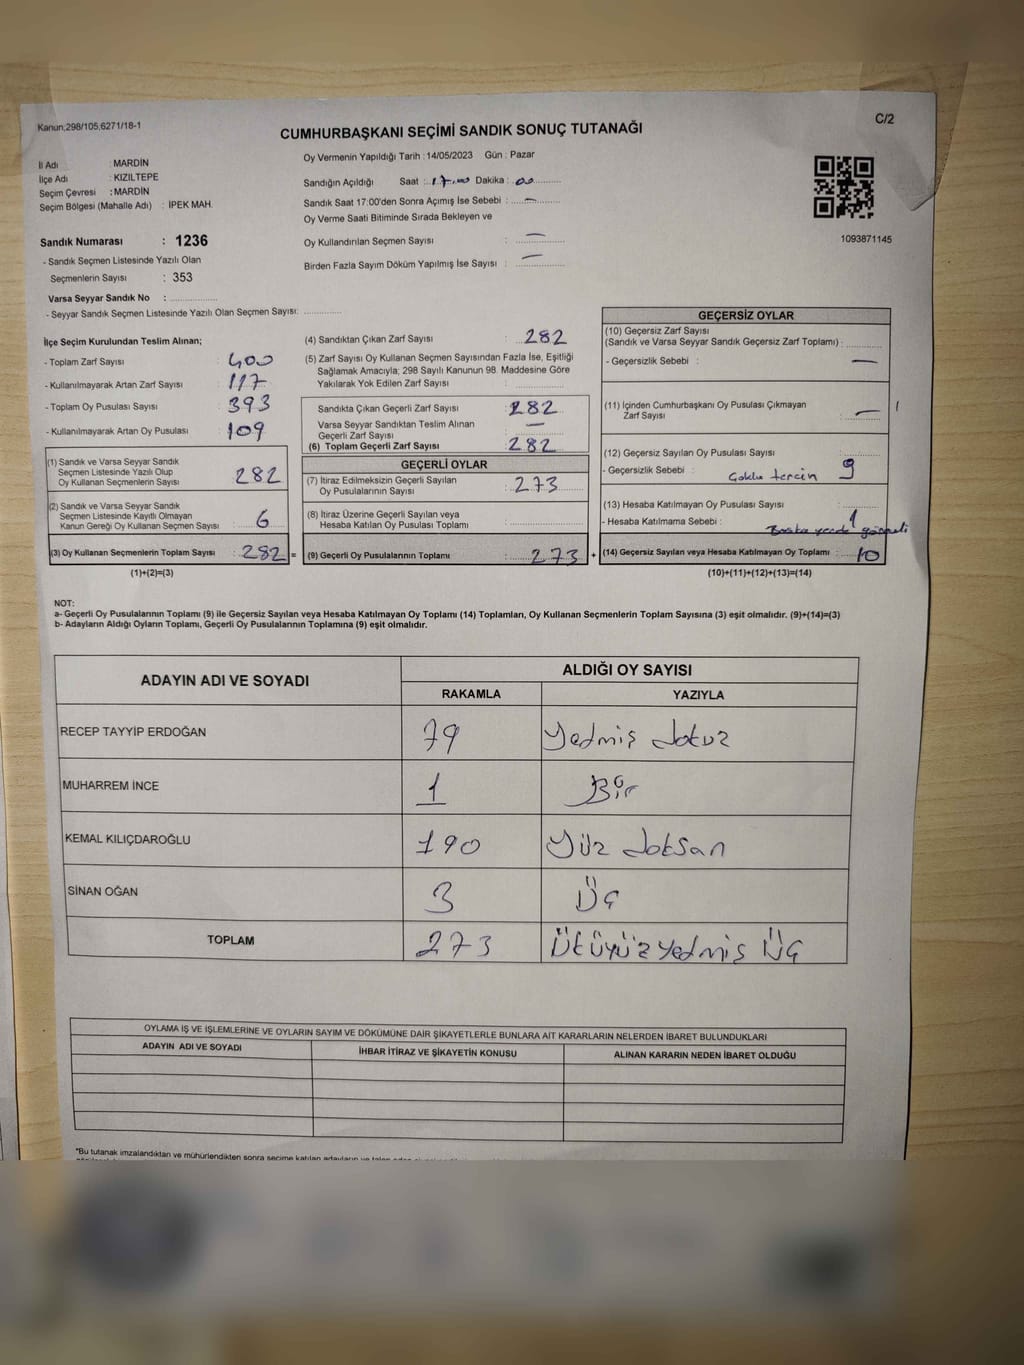 Kanun:298/105,6271/18-1
C/2
CUMHURBAŞKANI SEÇİMİ SANDIK SONUÇ TUTANAĞI
İl Adı : MARDİN
İlçe Adı : KIZILTEPE
Seçim Çevresi : MARDİN
Seçim Bölgesi (Mahalle Adı) : İPEK MAH.
Sandık Numarası : 1236
- Sandık Seçmen Listesinde Yazılı Olan
Seçmenlerin Sayısı : 353
Varsa Seyyar Sandık No :
- Seyyar Sandık Seçmen Listesinde Yazılı Olan Seçmen Sayısı:
Oy Vermenin Yapıldığı Tarih : 14/05/2023 Gün : Pazar
Sandığın Açıldığı Saat : 17.00 Dakika : 00
Sandık Saat 17:00'den Sonra Açımış İse Sebebi : —
Oy Verme Saati Bitiminde Sırada Bekleyen ve
Oy Kullandırılan Seçmen Sayısı : —
Birden Fazla Sayım Döküm Yapılmış İse Sayısı : —
1093871145
İlçe Seçim Kurulundan Teslim Alınan;
- Toplam Zarf Sayısı : 400
- Kullanılmayarak Artan Zarf Sayısı : 117
- Toplam Oy Pusulası Sayısı : 393
- Kullanılmayarak Artan Oy Pusulası : 109
(1) Sandık ve Varsa Seyyar Sandık
Seçmen Listesinde Yazılı Olup
Oy Kullanan Seçmenlerin Sayısı : 282
(2) Sandık ve Varsa Seyyar Sandık
Seçmen Listesinde Kayıtlı Olmayan
Kanun Gereği Oy Kullanan Seçmen Sayısı : 6
(3) Oy Kullanan Seçmenlerin Toplam Sayısı : 282 =
(1)+(2)=(3)
(4) Sandıktan Çıkan Zarf Sayısı : 282
(5) Zarf Sayısı Oy Kullanan Seçmen Sayısından Fazla İse, Eşitliği
Sağlamak Amacıyla; 298 Sayılı Kanunun 98. Maddesine Göre
Yakılarak Yok Edilen Zarf Sayısı :
Sandıkta Çıkan Geçerli Zarf Sayısı : 282
Varsa Seyyar Sandıktan Teslim Alınan
Geçerli Zarf Sayısı : —
(6) Toplam Geçerli Zarf Sayısı : 282
GEÇERLİ OYLAR
(7) İtiraz Edilmeksizin Geçerli Sayılan
Oy Pusulalarının Sayısı : 273
(8) İtiraz Üzerine Geçerli Sayılan veya
Hesaba Katılan Oy Pusulası Toplamı :
(9) Geçerli Oy Pusulalarının Toplamı : 273 +
GEÇERSİZ OYLAR
(10) Geçersiz Zarf Sayısı
(Sandık ve Varsa Seyyar Sandık Geçersiz Zarf Toplamı) :
- Geçersizlik Sebebi : —
(11) İçinden Cumhurbaşkanı Oy Pusulası Çıkmayan
Zarf Sayısı : —
(12) Geçersiz Sayılan Oy Pusulası Sayısı : 9
- Geçersizlik Sebebi : Çoklu tercih
(13) Hesaba Katılmayan Oy Pusulası Sayısı : 1
- Hesaba Katılmama Sebebi : Başka yerde
(14) Geçersiz Sayılan veya Hesaba Katılmayan Oy Toplamı : 10
(10)+(11)+(12)+(13)=(14)
NOT:
a- Geçerli Oy Pusulalarının Toplamı (9) ile Geçersiz Sayılan veya Hesaba Katılmayan Oy Toplamı (14) Toplamları, Oy Kullanan Seçmenlerin Toplam Sayısına (3) eşit olmalıdır. (9)+(14)=(3)
b- Adayların Aldığı Oyların Toplamı, Geçerli Oy Pusulalarının Toplamına (9) eşit olmalıdır.
ADAYIN ADI VE SOYADI
ALDIĞI OY SAYISI
RAKAMLA YAZIYLA
RECEP TAYYİP ERDOĞAN 79 Yedmiş dokuz
MUHARREM İNCE 1 Bir
KEMAL KILIÇDAROĞLU 190 Yüz doksan
SİNAN OĞAN 3 Üç
TOPLAM 273 İkiyüz yedmiş Üç
OYLAMA İŞ VE İŞLEMLERİNE VE OYLARIN SAYIM VE DÖKÜMÜNE DAİR ŞİKAYETLERLE BUNLARA AİT KARARLARIN NELERDEN İBARET BULUNDUKLARI
ADAYIN ADI VE SOYADI İHBAR İTİRAZ VE ŞİKAYETİN KONUSU ALINAN KARARIN NEDEN İBARET OLDUĞU
*Bu tutanak imzalandıktan ve mühürlendikten sonra seçime katılan adayların ve